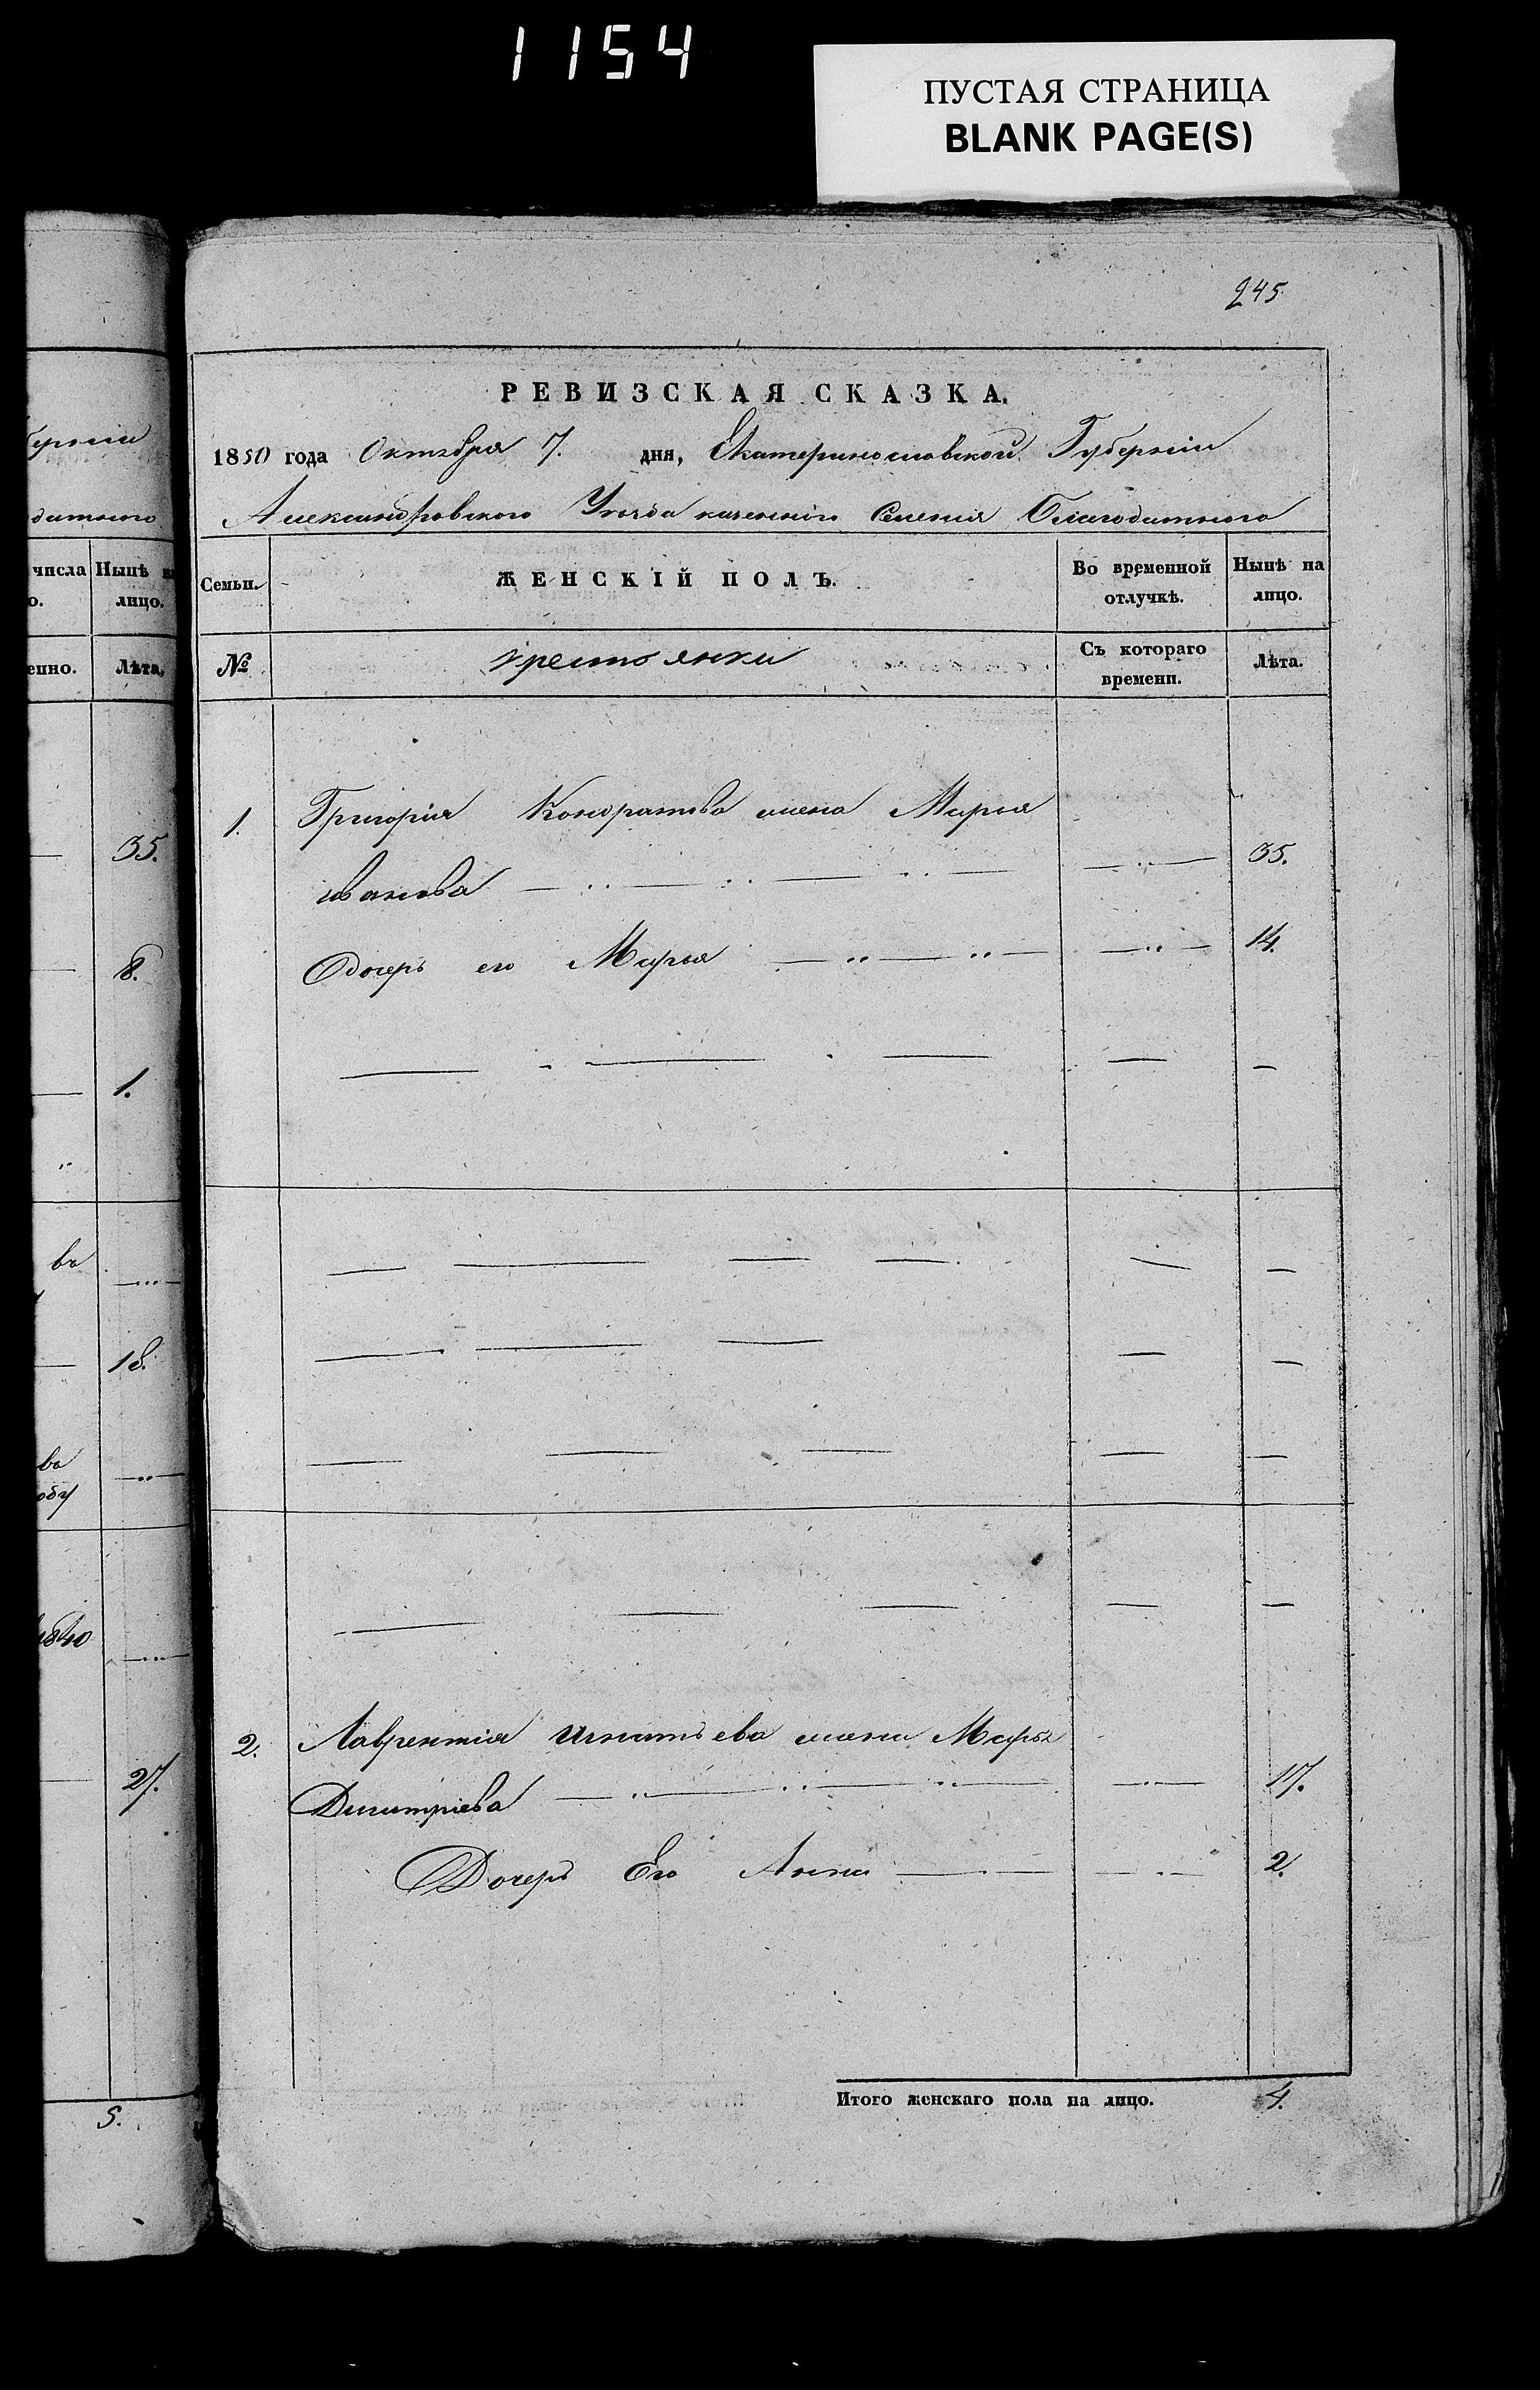 1154
ПУСТАЯ СТРАНИЦА
BLANK PAGE(S)
245.
РЕВИЗСКАЯ СКАЗКА.
1850 года Октября 7. дня, Екатеринославской Губерніи
Александровского Уезда казенного Селения Благодатного
Семьи. ЖЕНСКІЙ ПОЛЪ. Во временной отлучкѣ. Нынѣ на лицо.
№ крестьянки Съ котораго времени. Лѣта.
1. Григорія Кондратова жена Марья
иванова 35.
Дочерь его Марья 14.
2. Лаврентія игнатьева жена Марья
Дмитріева 17.
Дочерь Его Анна 2.
Итого женскаго пола на лицо. 4.
датного
числа Нынѣ
о. лицо.
Лѣта,
35.
8.
1.
въ
18.
въ
1840
27.
5.